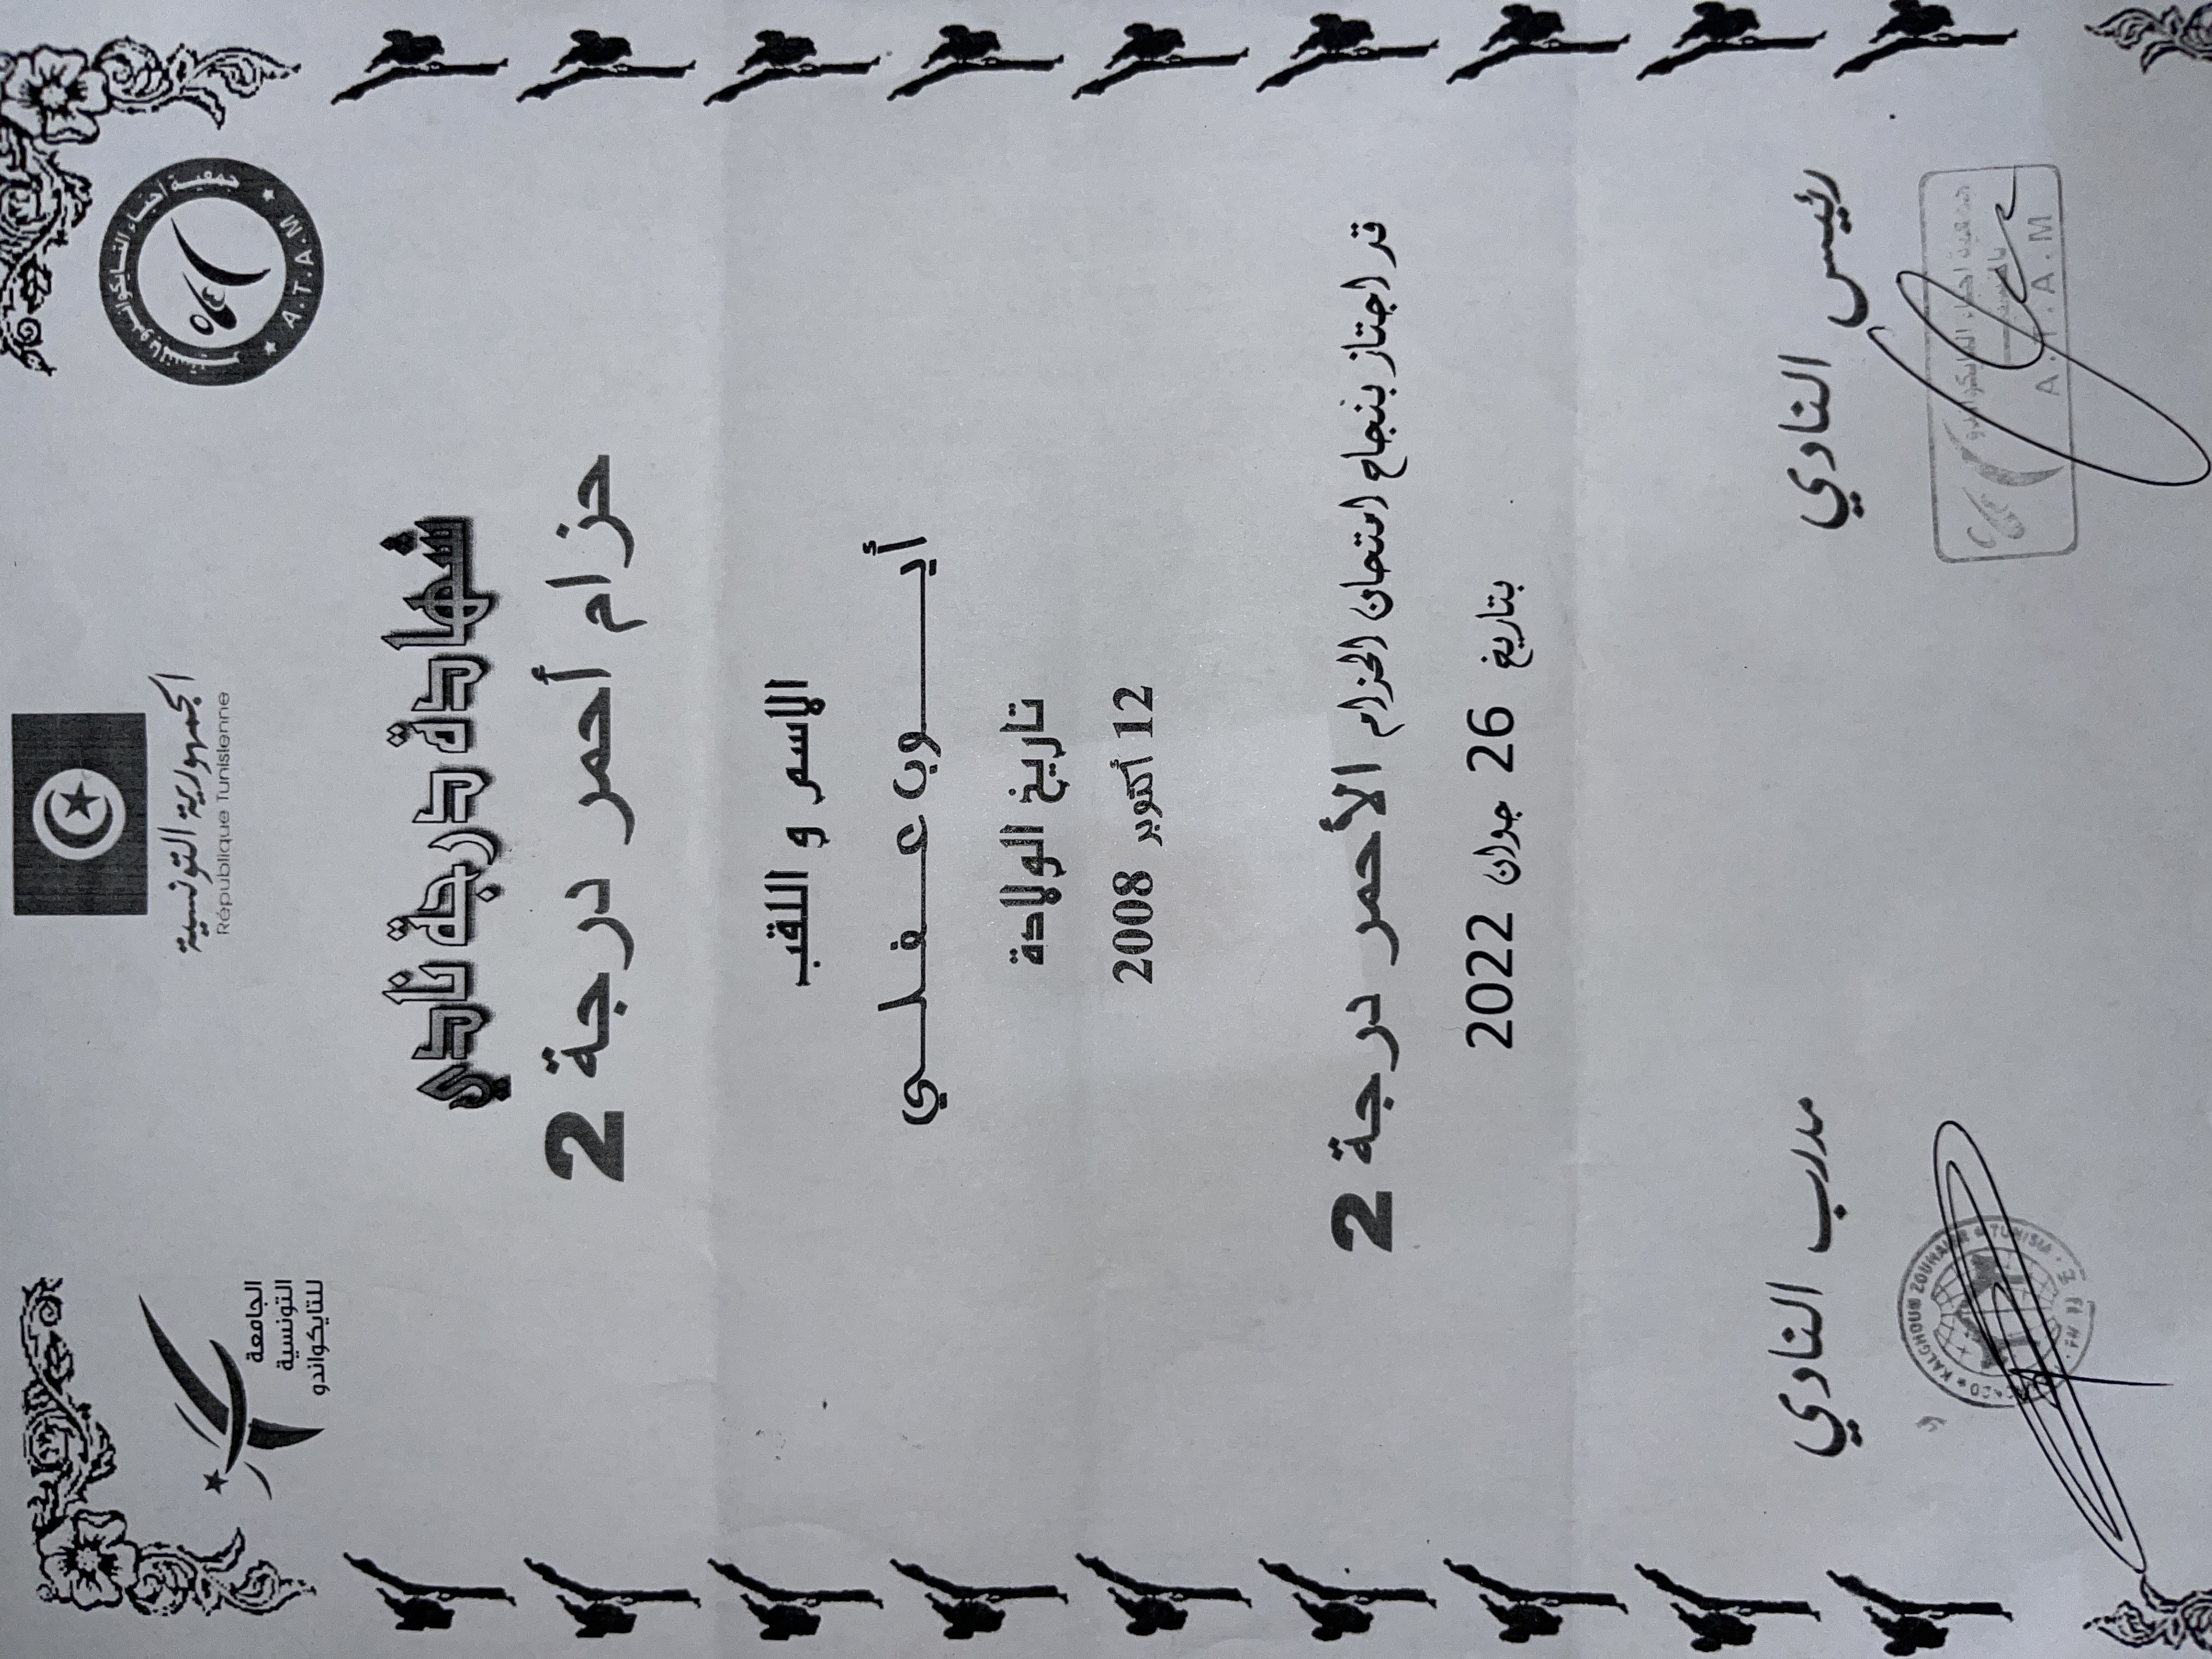 الجمهورية التونسية
République Tunisienne
جمعية أحباء التايكواندو
A.T.A.M
الجامعة
التونسية
للتايكواندو
شهادة درجة نادي
حزام أحمر درجة 2
الاسم و اللقب
أيوب عفلي
تاريخ الولادة
12 أكتوبر 2008
قد اجتاز بنجاح امتحان الحزام الأحمر درجة 2
بتاريخ 26 جوان 2022
رئيس النادي
جمعية أحباء التايكواندو
A.T.A.M
مدرب النادي
KALGHOUM ZOUHAIER TUNISIA